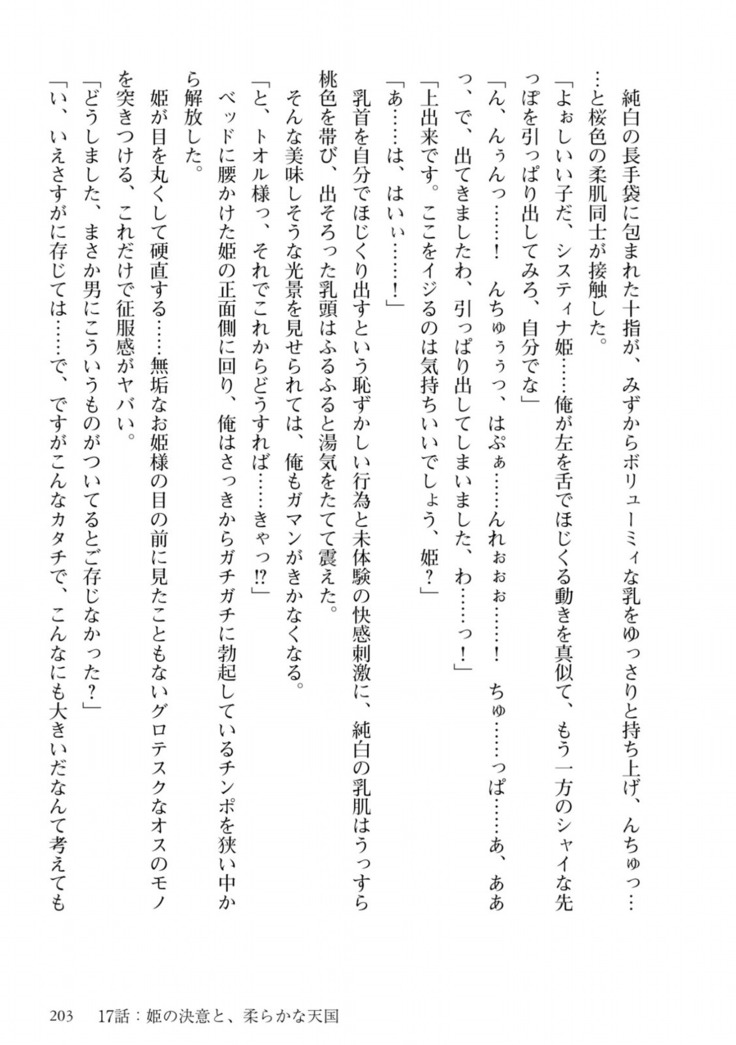 純白の長手袋に包まれた十指が、みずからボリューミィな乳をゆっさりと持ち上げ、んちゅっ…
…と桜色の柔肌同士が接触した。
「よぉしいい子だ、システィナ姫……俺が左を舌でほじくる動きを真似て、もう一方のシャイな先
っぽを引っぱり出してみろ、自分でな」
「ん、んぅんっ……！　んちゅぅぅっ、はぷぁ……んれぉぉぉ……！　ちゅ……っぱ……あ、ああ
っ、で、出てきましたわ、引っぱり出してしまいました、わ……っ！」
「上出来です。ここをイジるのは気持ちいいでしょう、姫？」
「あ……は、はいぃ……！」
乳首を自分でほじくり出すという恥ずかしい行為と未体験の快感刺激に、純白の乳肌はうっすら
桃色を帯び、出そろった乳頭はふるふると湯気をたてて震えた。
そんな美味しそうな光景を見せられては、俺もガマンがきかなくなる。
「と、トオル様っ、それでこれからどうすれば……きゃっ!?」
ベッドに腰かけた姫の正面側に回り、俺はさっきからガチガチに勃起しているチンポを狭い中か
ら解放した。
姫が目を丸くして硬直する……無垢なお姫様の目の前に見たこともないグロテスクなオスのモノ
を突きつける、これだけで征服感がヤバい。
「どうしました、まさか男にこういうものがついてるとご存じなかった？」
「い、いえさすがに存じては……で、ですがこんなカタチで、こんなにも大きいだなんて考えても
203　17話：姫の決意と、柔らかな天国